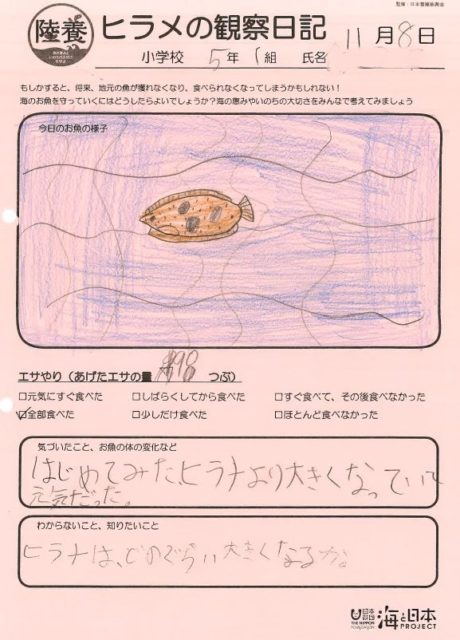 陸養
ヒラメの観察日記
11月8日
小学校 5年 1組 氏名
もしかすると、将来、地元の魚が獲れなくなり、食べられなくなってしまうかもしれない！
海のお魚を守っていくにはどうしたらよいでしょうか？海の恵みやいのちの大切さをみんなで考えてみましょう
今日のお魚の様子
エサやり（あげたエサの量 98 つぶ）
□元気にすぐ食べた □しばらくしてから食べた □すぐ食べて、その後食べなかった
□全部食べた □少しだけ食べた □ほとんど食べなかった
気づいたこと、お魚の体の変化など
はじめてみた、ヒラメより大きくなっていて
元気だった。
わからないこと、知りたいこと
ヒラメは、どのぐらい大きくなるか。
日本財団
THE NIPPON FOUNDATION
海と日本
PROJECT